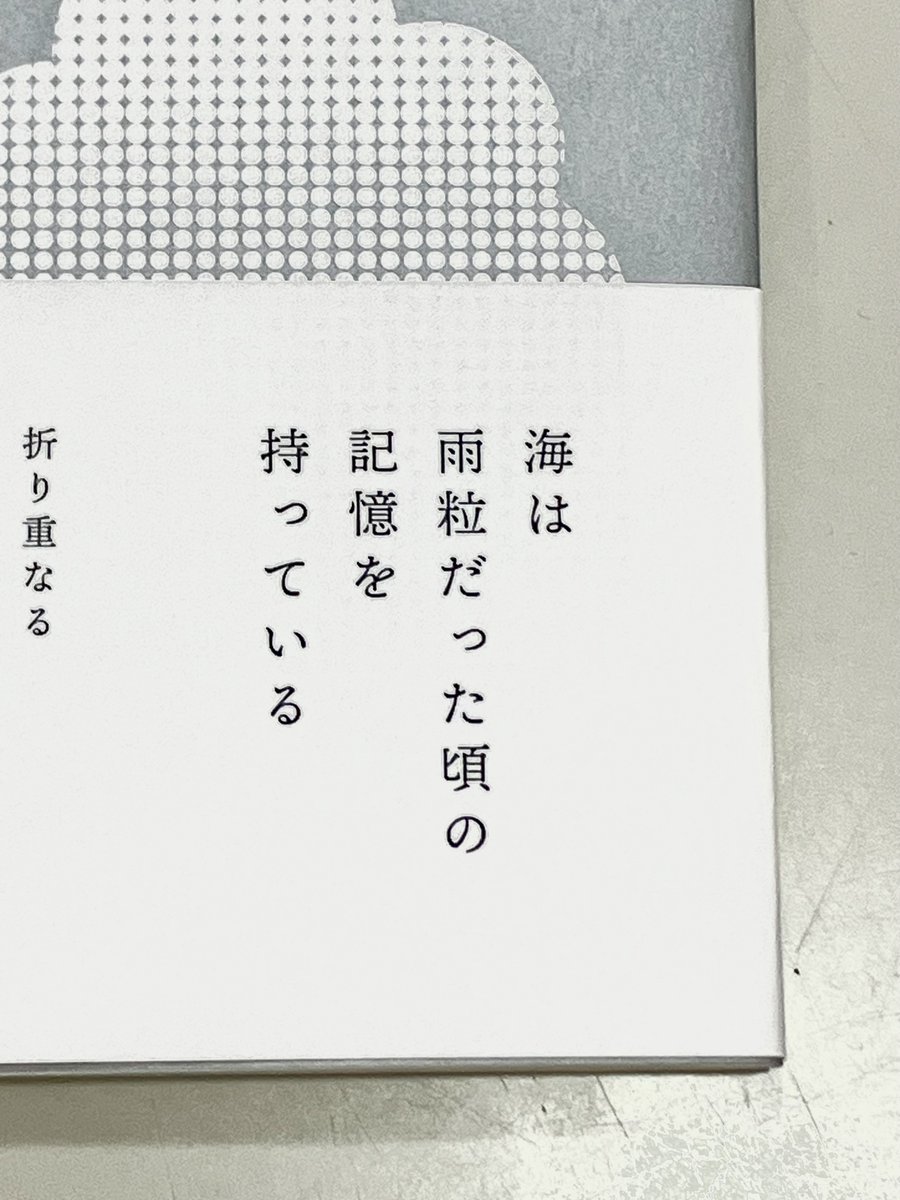 海は
雨粒だった頃の
記憶を
持っている
折り重なる